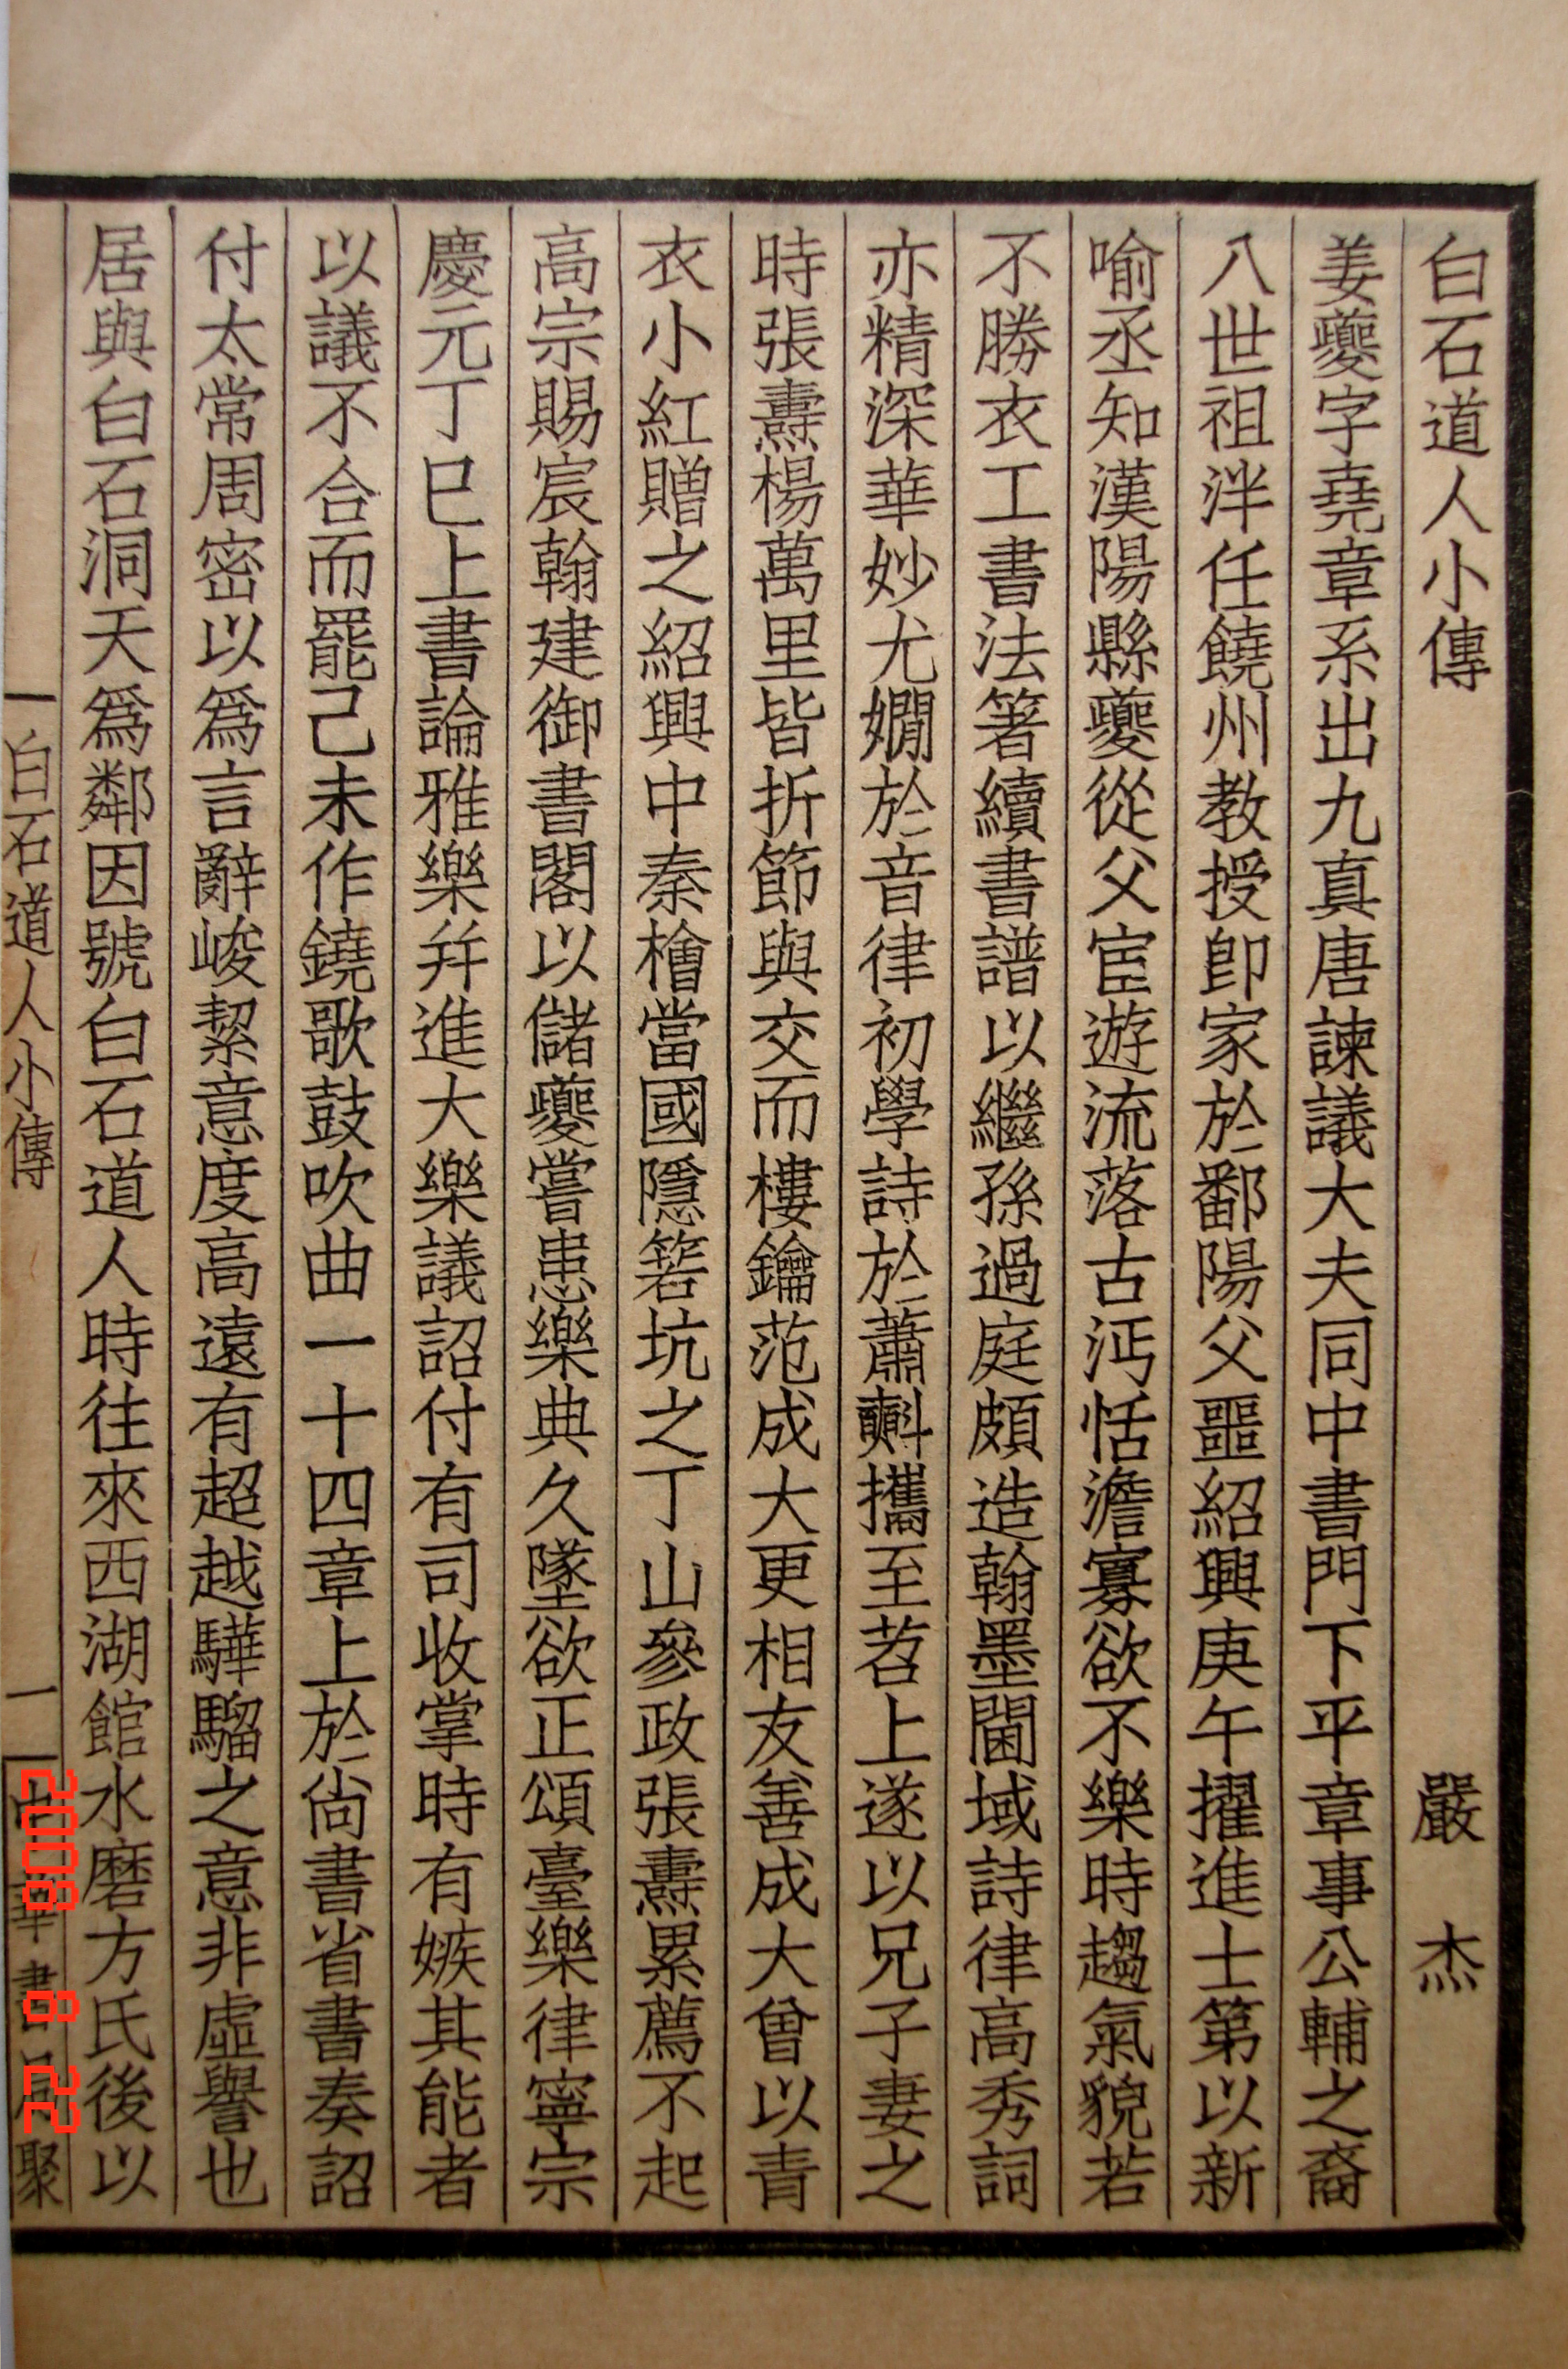 白石道人小傳　嚴　杰
姜夔字堯章系出九真唐諫議大夫同中書門下平章事公輔之裔
八世祖泮任饒州教授卽家於鄱陽父噩紹興庚午擢進士第以新
喻丞知漢陽縣夔從父宦遊流落古沔恬澹寡欲不樂時趨氣貌若
不勝衣工書法箸續書譜以繼孫過庭頗造翰墨閫域詩律高秀詞
亦精深華妙尤嫺於音律初學詩於蕭𣂏攜至苕上遂以兄子妻之
時張燾楊萬里皆折節與交而樓鑰范成大更相友善成大曾以青
衣小紅贈之紹興中秦檜當國隱箬坑之丁山參政張燾累薦不起
高宗賜宸翰建御書閣以儲夔嘗患樂典久墜欲正頌臺樂律寧宗
慶元丁巳上書論雅樂幷進大樂議詔付有司收掌時有嫉其能者
以議不合而罷己未作鐃歌鼓吹曲一十四章上於尙書省書奏詔
付太常周密以爲言辭峻絜意度高遠有超越驊騮之意非虛譽也
居與白石洞天爲鄰因號白石道人時往來西湖館水磨方氏後以
白石道人小傳　一　中華書局聚
2008 8 22